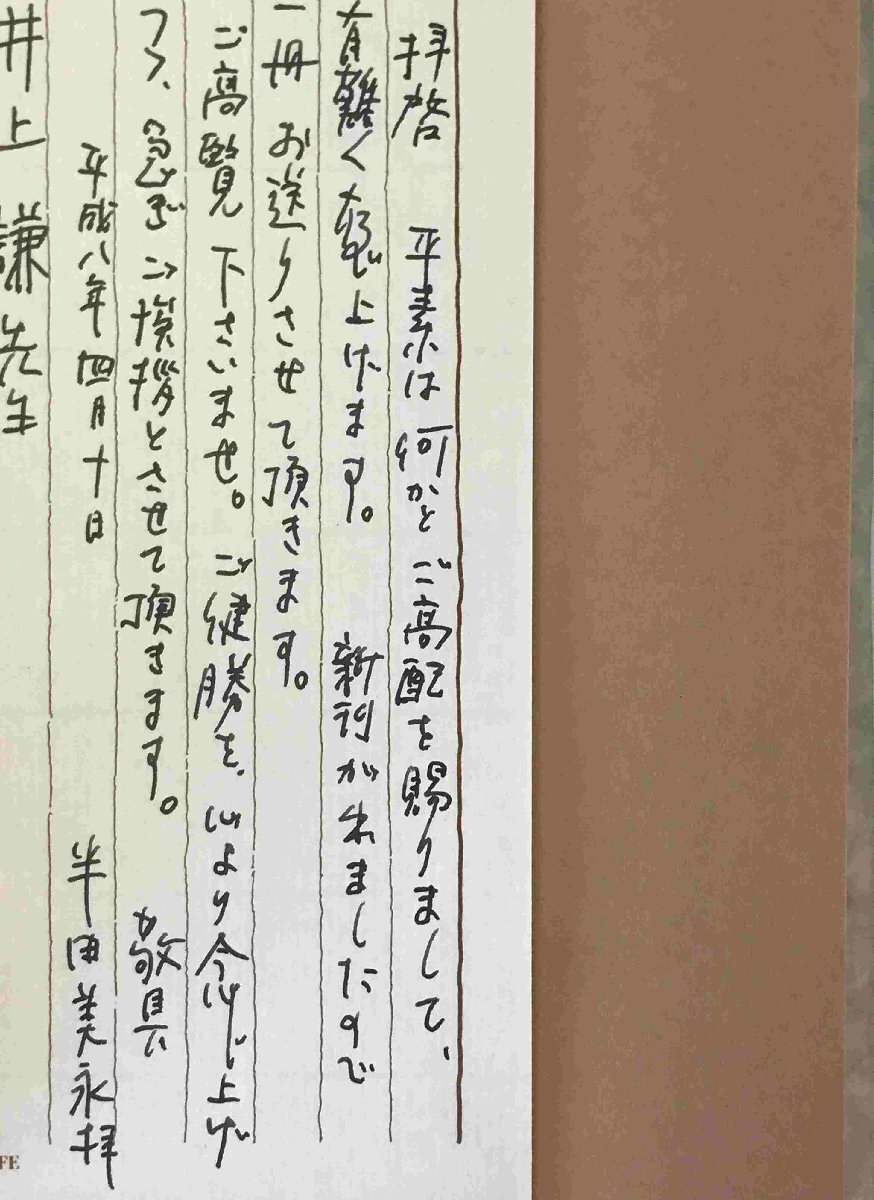 拝啓 平素は何かとご高配を賜りまして、
有難く存じ上げます。 新刊が出ましたので
一冊お送りさせて頂きます。
ご高覧下さいませ。ご健勝を、心より念じ上げ
つつ、急ぎご挨拶とさせて頂きます。 敬具
平成八年四月十日 半田美永拝
井上謙先生
FE